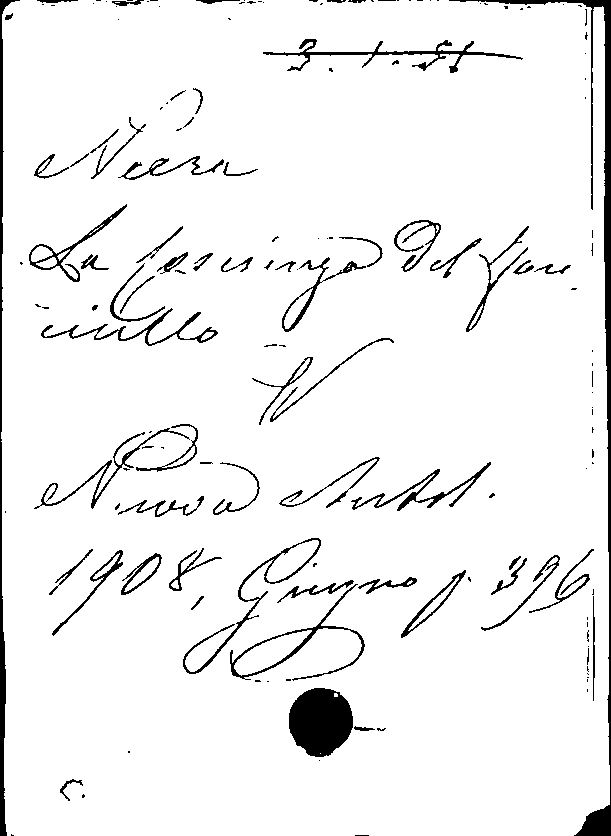 3.1.51
Neera
La coscienza del fan-
ciullo
IV
Nuova Antol.
1908, Giugno p. 396
C.